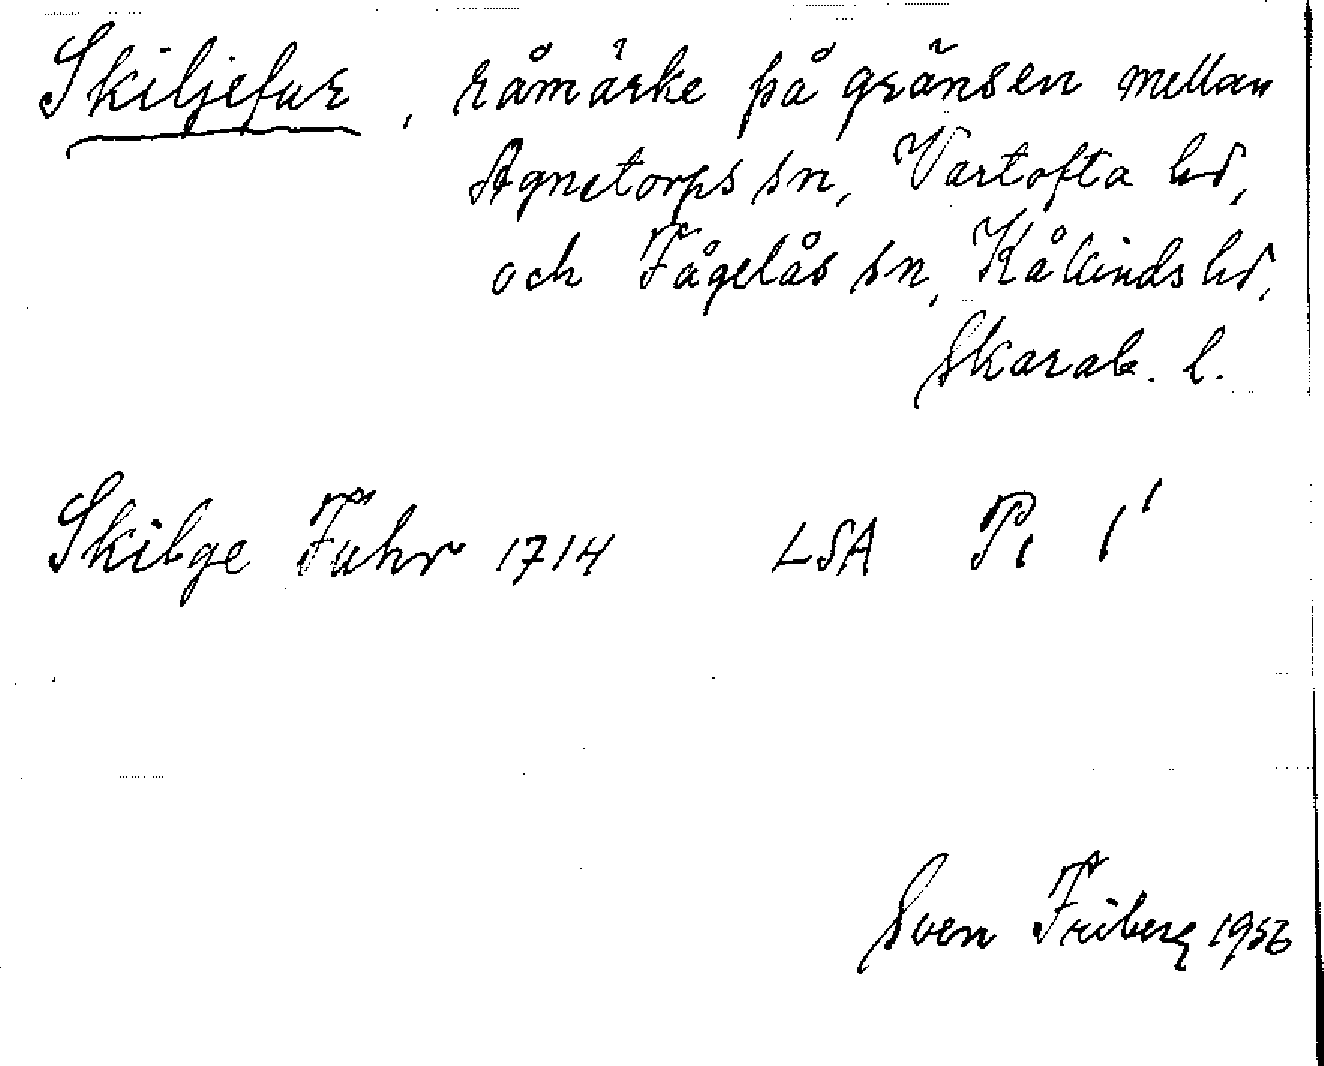 Skiljefur, råmärke på gränsen mellan
Agnetorps sn, Vartofta hd,
och Fågelås sn, Kåkinds hd,
Skarab. l.
Skilge Fuhr 1714 LSA P, 1'
Sven Friberg 1956